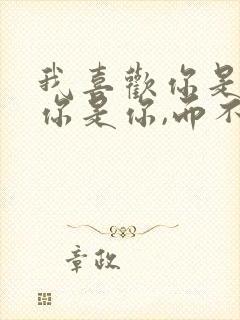 我喜歡你是
你是你,而不
章政